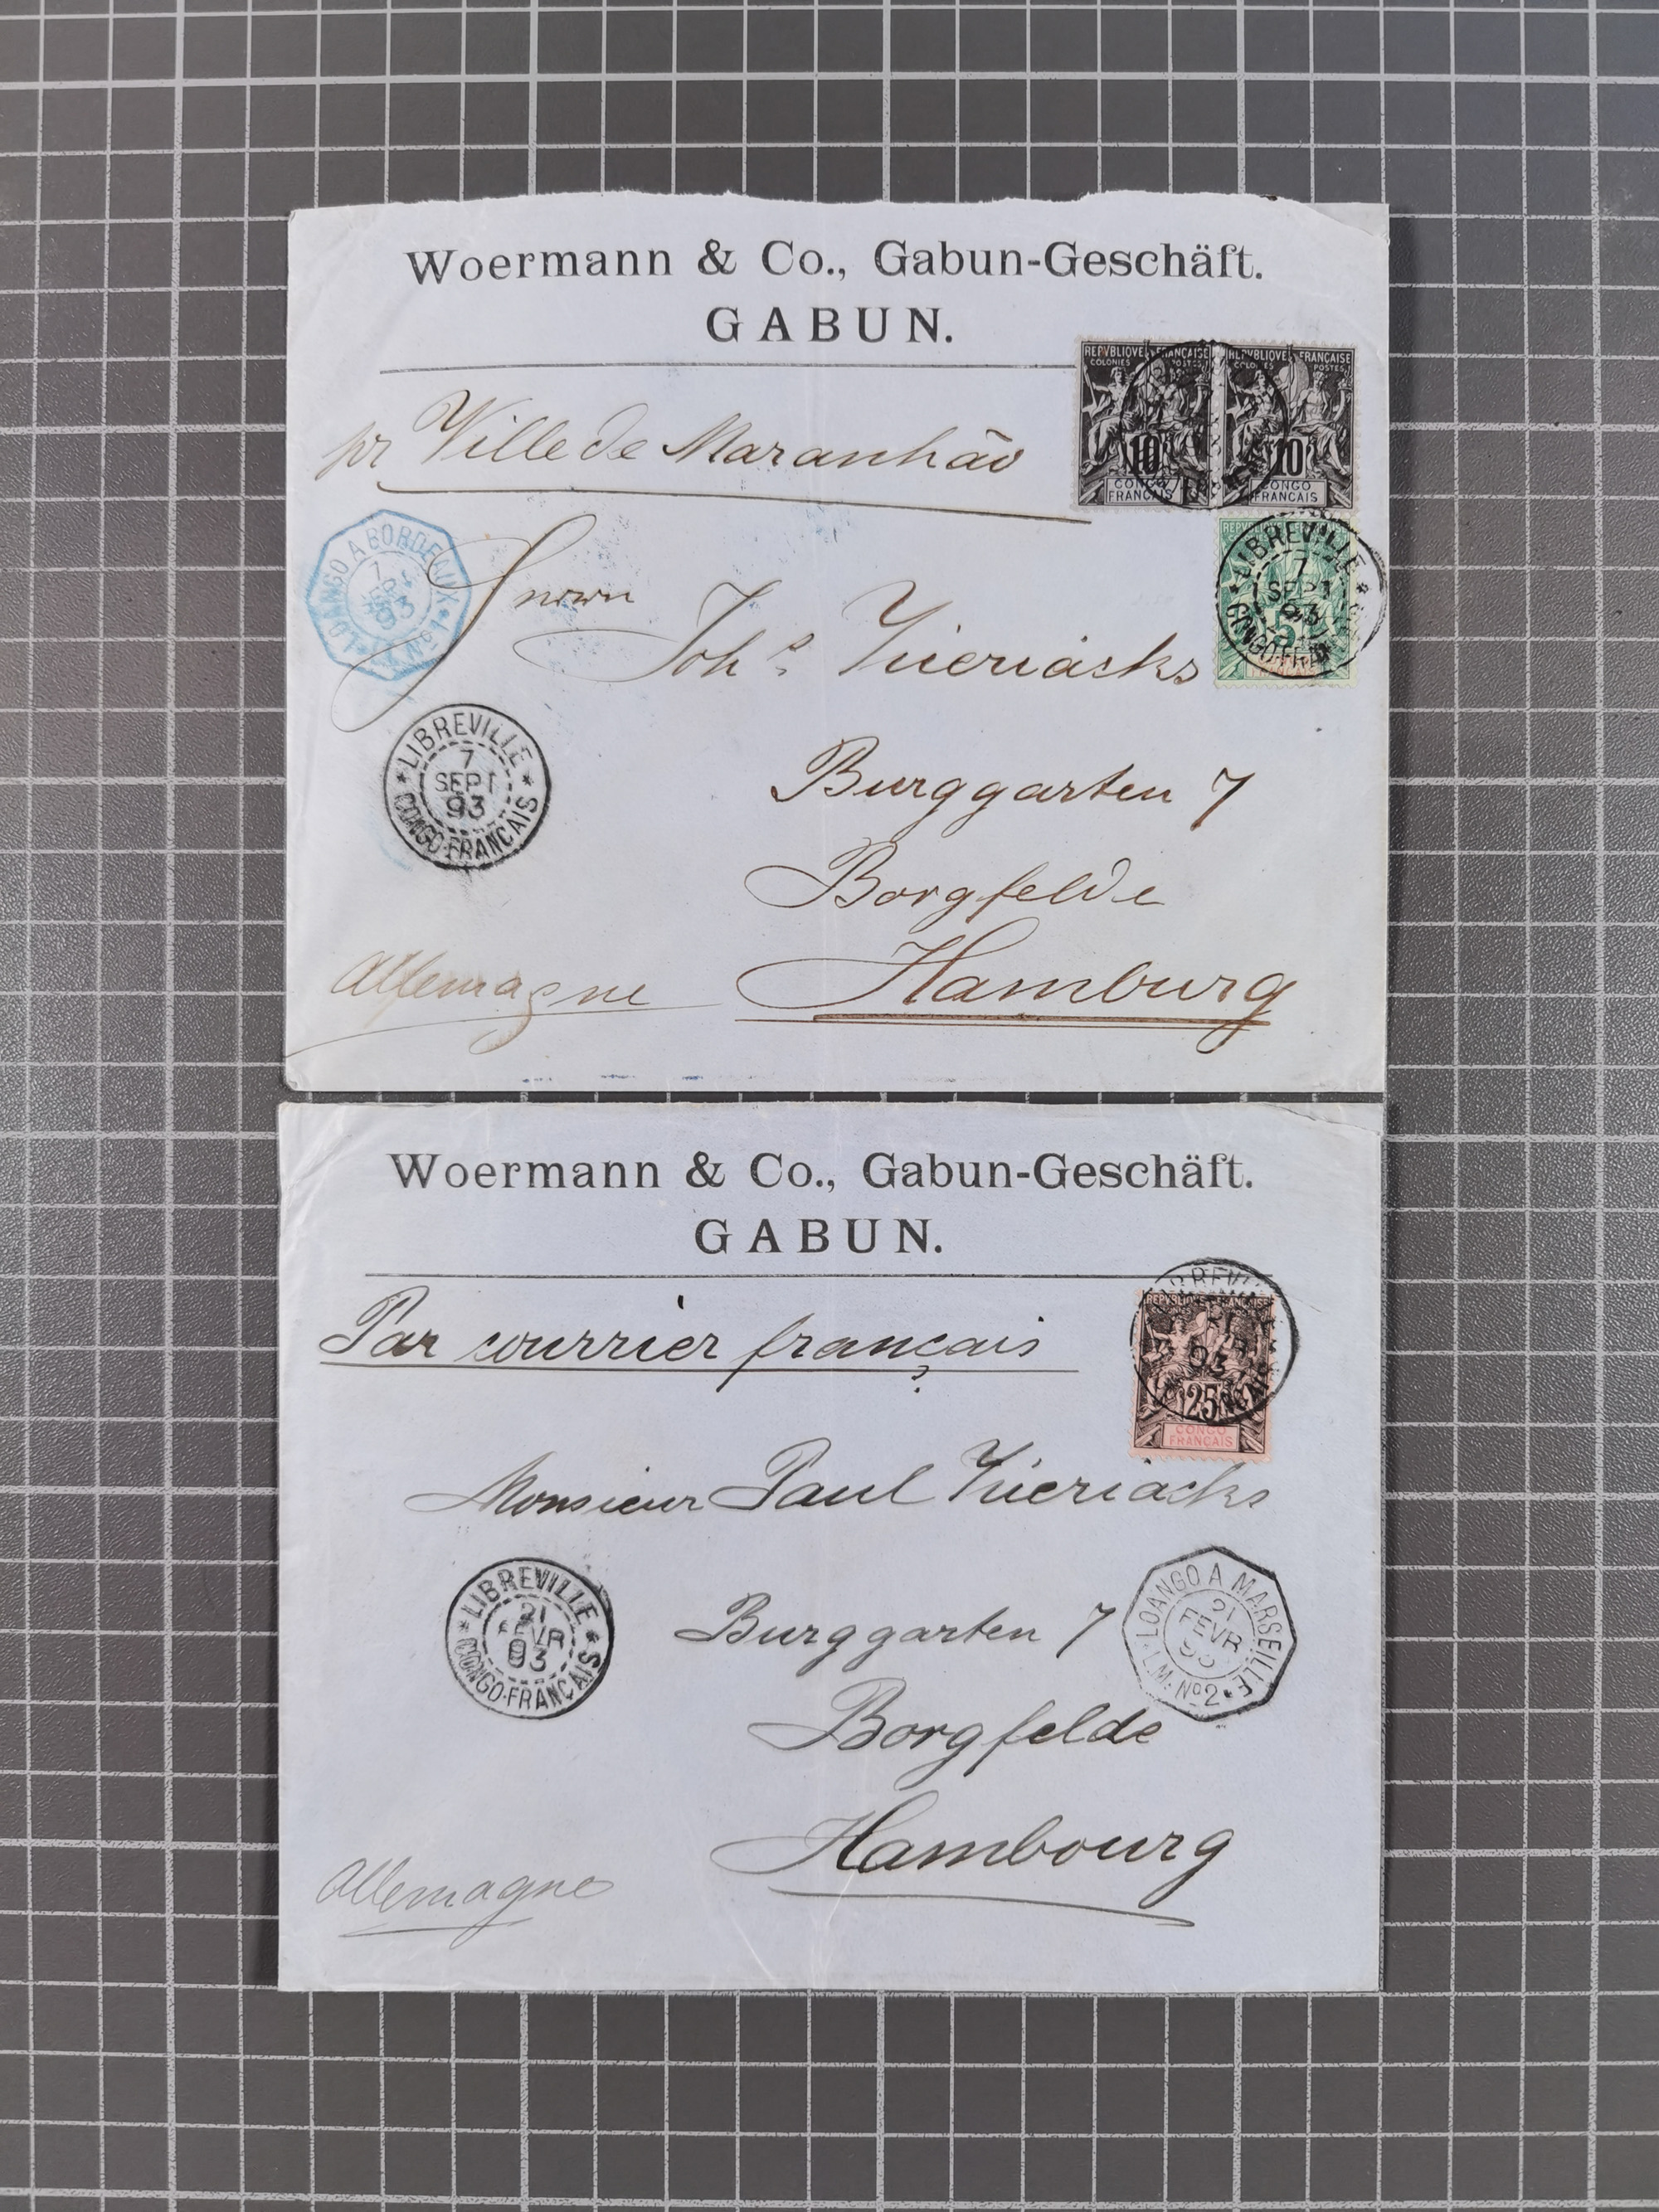 Woermann & Co., Gabun-Geschäft.
GABUN.
REPVBLIQVE FRANÇAISE
COLONIES POSTES
10
CONGO
FRANÇAIS
REPVBLIQVE FRANÇAISE
COLONIES POSTES
10
CONGO
FRANÇAIS
pr Ville de Maranhão
LOANGO A BORDEAUX
7
SEPT
93
L.L. No1
LIBREVILLE
7
SEPT
93
CONGO-FRANÇAIS
5
Herrn
Johs.
Burggarten 7
LIBREVILLE
7
SEPT
93
CONGO-FRANÇAIS
Borgfelde
Allemagne
Hamburg
Woermann & Co., Gabun-Geschäft.
GABUN.
Par courrier français
REPVBLIQVE FRANÇAISE
93
25
CONGO
FRANÇAIS
Monsieur Paul
LIBREVILLE
21
FEVR
93
CONGO-FRANÇAIS
Burggarten 7
LOANGO A MARSEILLE
21
FEVR
93
L.M. No2
Borgfelde
Hambourg
Allemagne